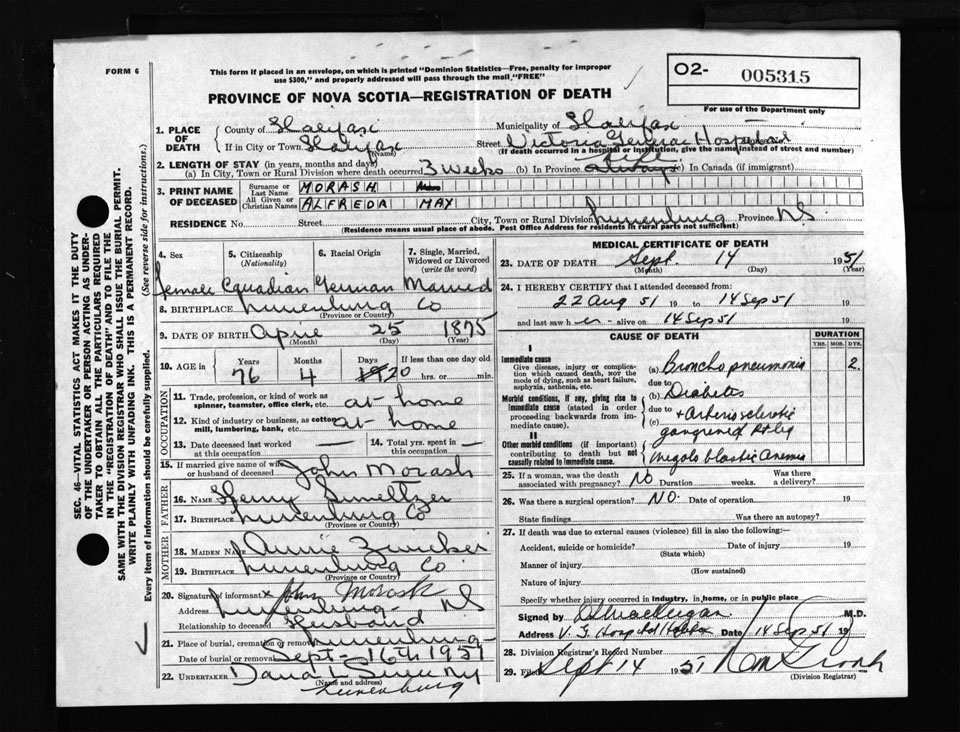 FORM 6
This form if placed in an envelope, on which is printed "Dominion Statistics—Free, penalty for improper
use $300," and properly addressed will pass through the mail "FREE"
O2- 005315
For use of the Department only
PROVINCE OF NOVA SCOTIA—REGISTRATION OF DEATH
1. PLACE OF DEATH { County of Halifax Municipality of Halifax
If in City or Town Halifax (Name) Street Victoria General Hospital
(If death occurred in a hospital or institution, give the name instead of street and number)
2. LENGTH OF STAY (in years, months and days)
(a) In City, Town or Rural Division where death occurred 3 weeks (b) In Province Life always (c) In Canada (if immigrant)
3. PRINT NAME OF DECEASED { Surname or Last Name MORASH
All Given or Christian Names ALFREDA MAY
RESIDENCE No. Street City, Town or Rural Division Lunenburg Province NS
(Residence means usual place of abode. Post Office Address for residents in rural parts not sufficient)
4. Sex 5. Citizenship (Nationality) 6. Racial Origin 7. Single, Married, Widowed or Divorced (write the word)
female Canadian German Married
8. BIRTHPLACE Lunenburg Co
(Province or Country)
9. DATE OF BIRTH April 25 1875
(Month) (Day) (Year)
10. AGE in { Years Months Days If less than one day old
76 4 20 hrs. or min.
OCCUPATION
11. Trade, profession, or kind of work as
spinner, teamster, office clerk, etc. at home
12. Kind of industry or business, as cotton
mill, lumbering, bank, etc. at home
13. Date deceased last worked
at this occupation —
14. Total yrs. spent in
this occupation —
15. If married give name of wife
or husband of deceased John Morash
FATHER
16. NAME Henry Smeltzer
17. BIRTHPLACE Lunenburg Co
(Province or Country)
MOTHER
18. MAIDEN NAME Annie Zwicker
19. BIRTHPLACE Lunenburg Co.
(Province or Country)
20. Signature of informant x John Morash
Address Lunenburg NS
Relationship to deceased Husband
21. Place of burial, cremation or removal Lunenburg
Date of burial or removal Sept- 16th 1951
22. UNDERTAKER
(Name and address)
Lunenburg
MEDICAL CERTIFICATE OF DEATH
23. DATE OF DEATH Sept. 14 1951
(Month) (Day) (Year)
24. I HEREBY CERTIFY that I attended deceased from:
22 Aug 51 19 to 14 Sep 51 19
and last saw h er alive on 14 Sep 51 19
CAUSE OF DEATH DURATION
YRS. MOS. DYS.
I
Immediate cause
Give disease, injury or complica-
tion which caused death, NOT the
mode of dying, such as heart failure,
asphyxia, asthenia, etc.
(a) Broncho pneumonia 2.
due to
Morbid conditions, if any, giving rise to
immediate cause (stated in order
proceeding backwards from im-
mediate cause).
(b) Diabetes
due to
(c) + Arteriosclerotic
gangrene of Rt leg
II
Other morbid conditions (if important)
contributing to death but not
causally related to immediate cause.
Megaloblastic Anemia
25. If a woman, was the death
associated with pregnancy? NO Duration weeks. Was there
a delivery?
26. Was there a surgical operation? NO. Date of operation 19
State findings Was there an autopsy?
27. If death was due to external causes (violence) fill in also the following:
Accident, suicide or homicide? Date of injury 19
(State which)
Manner of injury
(How sustained)
Nature of injury
Specify whether injury occurred in industry, in home, or in public place
Signed by M.D.
Address V. G. Hospital Halifax Date 14 Sep. 51 19
28. Division Registrar's Record Number
29. Filed Sept 14 1951
(Division Registrar)
SEC. 46—VITAL STATISTICS ACT MAKES IT THE DUTY
OF THE UNDERTAKER OR PERSON ACTING AS UNDER-
TAKER TO OBTAIN ALL THE PARTICULARS REQUIRED
IN THE "REGISTRATION OF DEATH" AND TO FILE THE
SAME WITH THE DIVISION REGISTRAR WHO SHALL ISSUE THE BURIAL PERMIT.
WRITE PLAINLY WITH UNFADING INK. THIS IS A PERMANENT RECORD.
Every item of information should be carefully supplied. (See reverse side for instructions.)